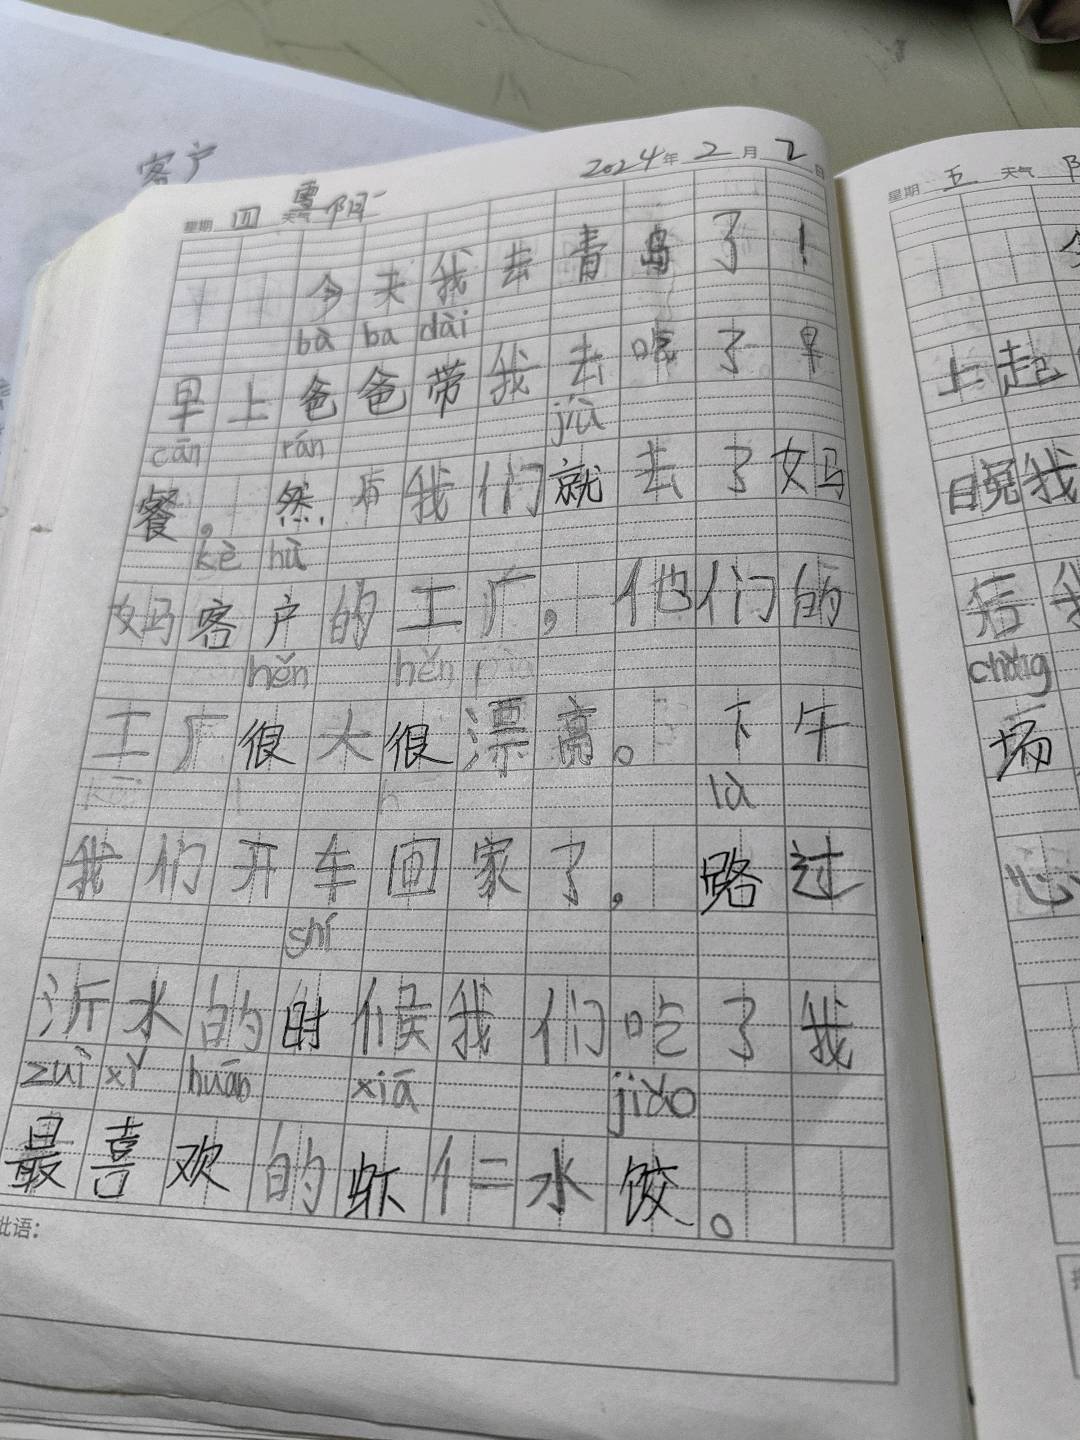 客户
2024年2月2日
星期四 天气 阴
今天我去青岛了！
bà ba dài
早上爸爸带我去吃了早
cān rán jiù
餐。然后我们就去了妈
kè hù
妈客户的工厂，他们的
hěn hěn
工厂很大很漂亮。下午
lù
我们开车回家了，路过
shí
沂水的时候我们吃了我
zuì xǐ huān xiā jiǎo
最喜欢的虾仁水饺。
批语：
星期五 天气
上起
晚我
后我
chǎng
场
心